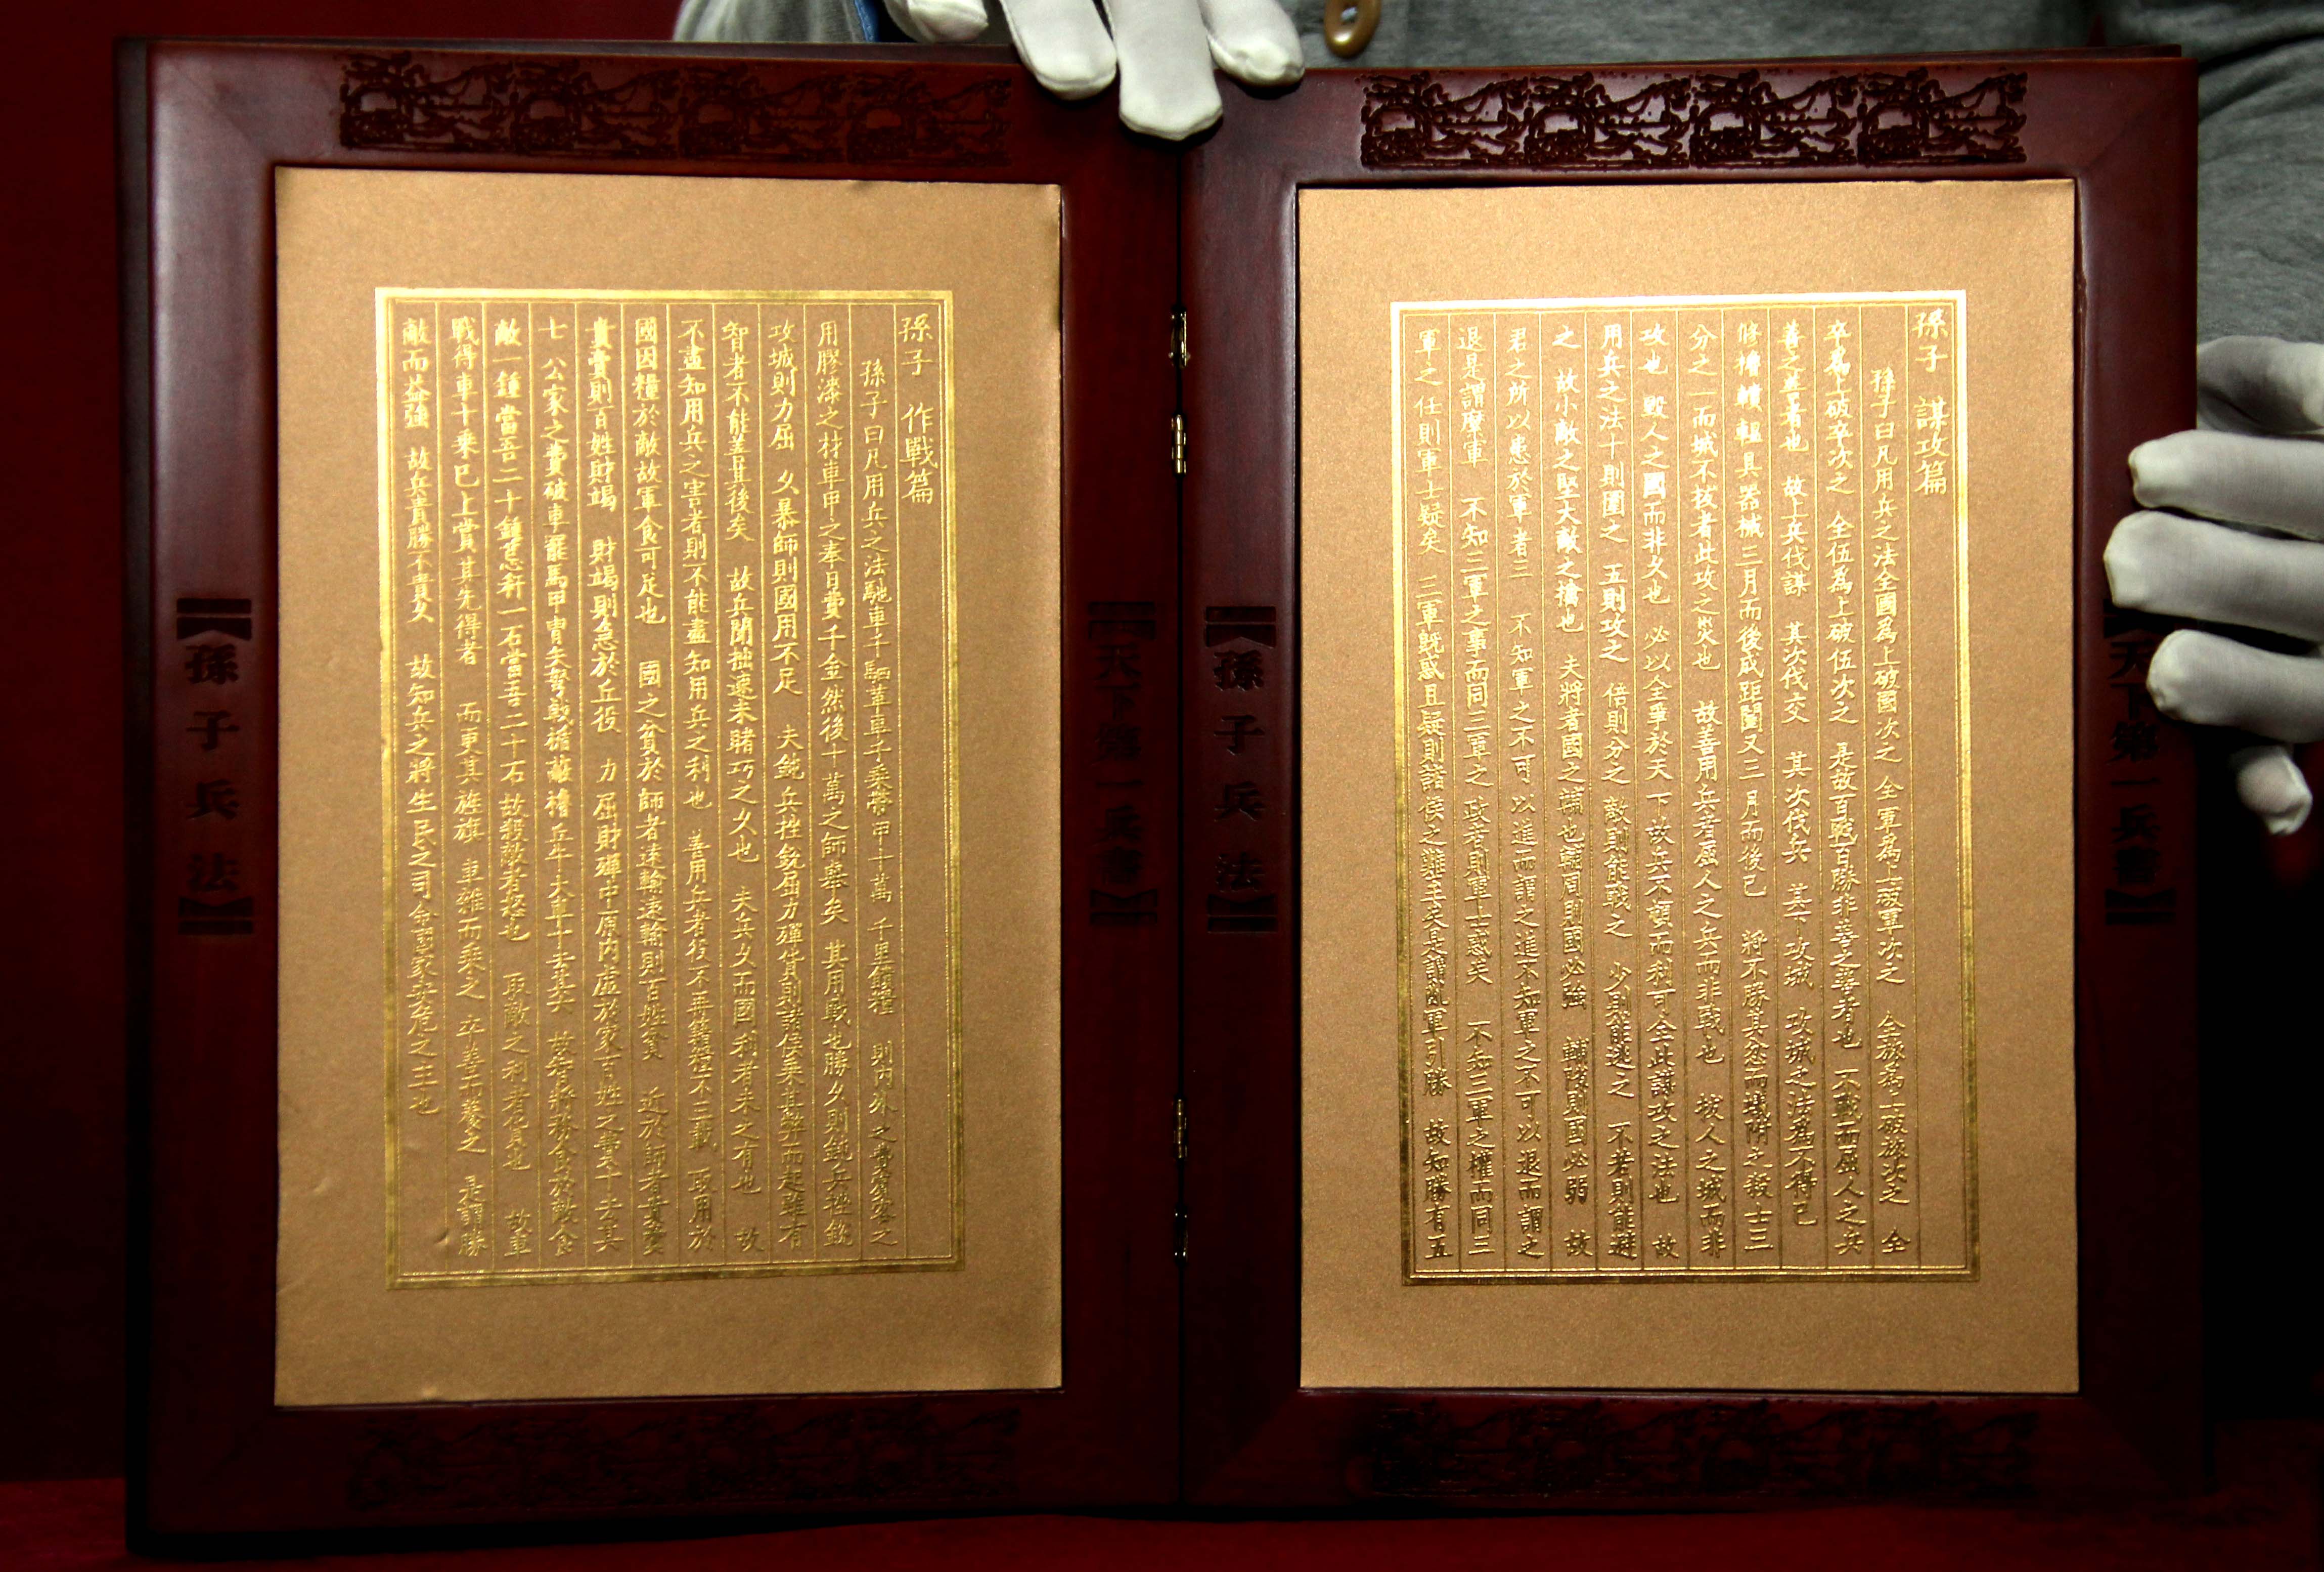 孫子 作戰篇
孫子曰凡用兵之法馳車千駟革車千乘帶甲十萬 千里饋糧 則內外之費賓客之
用膠漆之材車甲之奉日費千金然後十萬之師舉矣 其用戰也勝久則鈍兵挫銳
攻城則力屈 久暴師則國用不足 夫鈍兵挫銳屈力殫貨則諸侯乘其弊而起雖有
智者不能善其後矣 故兵聞拙速未睹巧之久也 夫兵久而國利者未之有也 故
不盡知用兵之害者則不能盡知用兵之利也 善用兵者役不再籍糧不三載 取用於
國因糧於敵故軍食可足也 國之貧於師者遠輸遠輸則百姓貧 近於師者貴賣
貴賣則百姓財竭 財竭則急於丘役 力屈財殫中原內虛於家百姓之費十去其
七 公家之費破車罷馬甲冑矢弩戟楯蔽櫓丘牛大車十去其六 故智將務食於敵食
敵一鍾當吾二十鍾萁秆一石當吾二十石故殺敵者怒也 取敵之利者貨也 故車
戰得車十乘已上賞其先得者 而更其旌旗 車雜而乘之 卒善而養之 是謂勝
敵而益強 故兵貴勝不貴久 故知兵之將生民之司命國家安危之主也
【孫子兵法】
【天下第一兵書】
孫子 謀攻篇
孫子曰凡用兵之法全國爲上破國次之 全軍爲上破軍次之 全旅爲上破旅次之 全
卒爲上破卒次之 全伍爲上破伍次之 是故百戰百勝非善之善者也 不戰而屈人之兵
善之善者也 故上兵伐謀 其次伐交 其次伐兵 其下攻城 攻城之法爲不得已
修櫓轒轀具器械三月而後成距闉又三月而後已 將不勝其忿而蟻附之殺士三
分之一而城不拔者此攻之災也 故善用兵者屈人之兵而非戰也 拔人之城而非
攻也 毀人之國而非久也 必以全爭於天下故兵不頓而利可全此謀攻之法也 故
用兵之法十則圍之 五則攻之 倍則分之 敵則能戰之 少則能逃之 不若則能避
之 故小敵之堅大敵之擒也 夫將者國之輔也輔周則國必強 輔隙則國必弱 故
君之所以患於軍者三 不知軍之不可以進而謂之進不知軍之不可以退而謂之
退是謂縻軍 不知三軍之事而同三軍之政者則軍士惑矣 不知三軍之權而同三
軍之任則軍士疑矣 三軍既惑且疑則諸侯之難至矣是謂亂軍引勝 故知勝有五
【孫子兵法】
天下第一兵書】